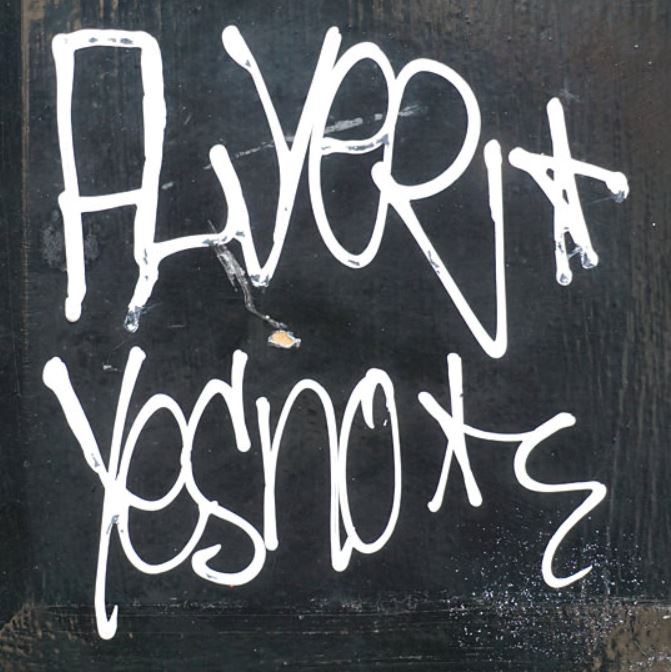 ALVER*
YESNO*